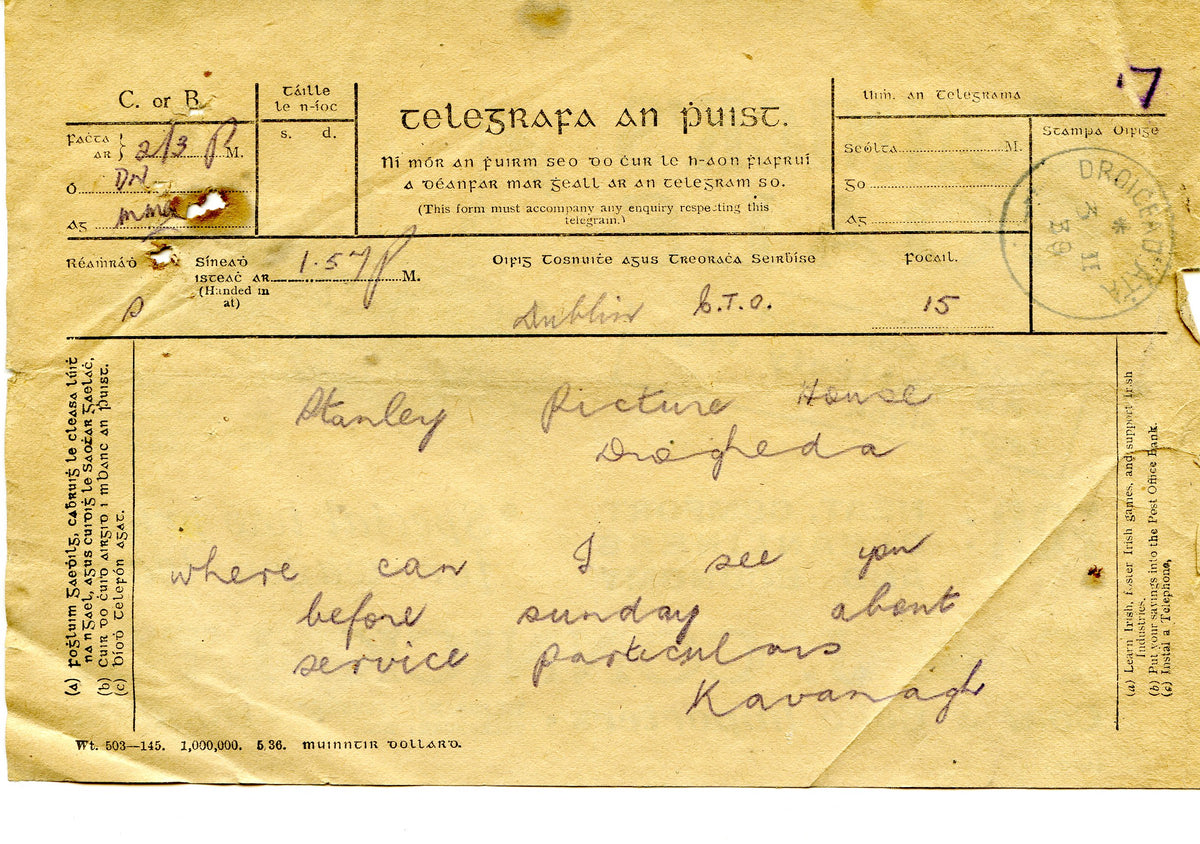 17
C. or B.
Táille
le n-íoc
s. d.
Faċta
ar } 2/3 P M.
Ó DN
Ag
Telegrafa an Ṗuist.
Ní mór an ḟuirm seo do ċur le h-aon ḟiafruí
a déanfar mar ġeall ar an telegram so.
(This form must accompany any enquiry respecting this
telegram.)
Uiṁ. an Telegrama
Seólta M.
go
Ag
Stampa Oifige
DROICEAD ÁTA
3 II
39
Réaṁráḋ
Síneaḋ
isteaċ ar 1.57 P M.
(Handed in
at)
Oifig Tosnuiṫe agus Treoraċa Seirḃíse
Focail.
Dublin C.T.O.
15
Stanley Picture House
Drogheda
where can I see you
before sunday about
service particulars
Kavanagh
(a) Foġluim Gaeḋilg, caḃruiġ le cleasa lúiṫ
na nGael, agus cuidiġ le Saoṫar Gaelaċ.
(b) Cuir do ċuid airgid i mBanc an Ṗuist.
(c) Bíoḋ Telefón agat.
(a) Learn Irish, foster Irish games, and support Irish
Industries.
(b) Put your savings into the Post Office Bank.
(c) Instal a Telephone,
Wt. 503—145. 1,000,000. 5,36. Muinntir Dollard.